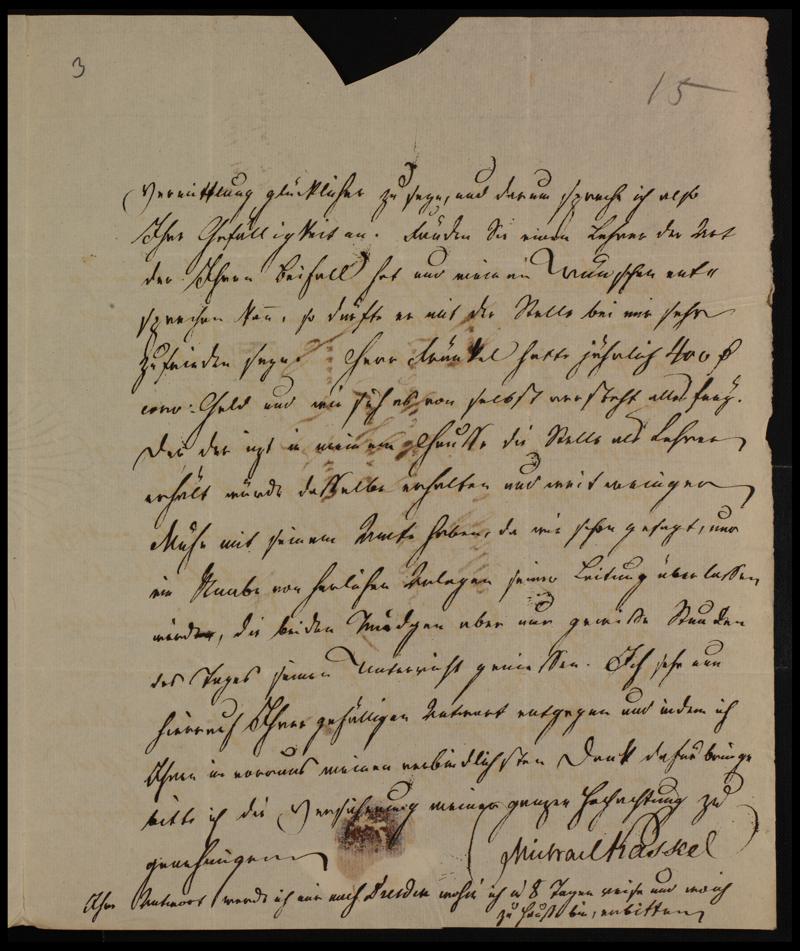 3
15
Vermittlung glücklicher zu seyn, und darum spreche ich also
Ihre Gefälligkeit an. Fänden Sie einen Lehrer der Art
der Ihren Beifall hat und meinen Wünschen ent=
sprechen kan, so dürfte er mit der Stelle bei mir sehr
zufrieden seyn. Herr Fränkel hatte jährlich 400
conv: Geld und wie sich es von selbst versteht alles frey.
Der der izt in meinem Hausse die Stelle als Lehrer
erhält würde dasselbe erhalten und weit weniger
Mühe mit seinem Amte haben, da wie schon gesagt, nur
ein Knabe von herlichen Anlagen seiner Leitung überlassen
würde, die beiden Mädgen aber nur gewisse Stunden
des Tages seinen Unterricht geniessen. Ich sehe nun
hierauf Ihrer gefälligen Antwort entgegen und indem ich
Ihnen im voraus meinen verbindlichsten Dank dafür bringe
bitte ich die Versicherung meiner ganzen Hochachtung zu
genehmigen
Michael Kaskel
Ihre Antwort werde ich mir nach Dresden wohin ich in 8 Tagen reise und wo ich
zu Hause bin, erbitten